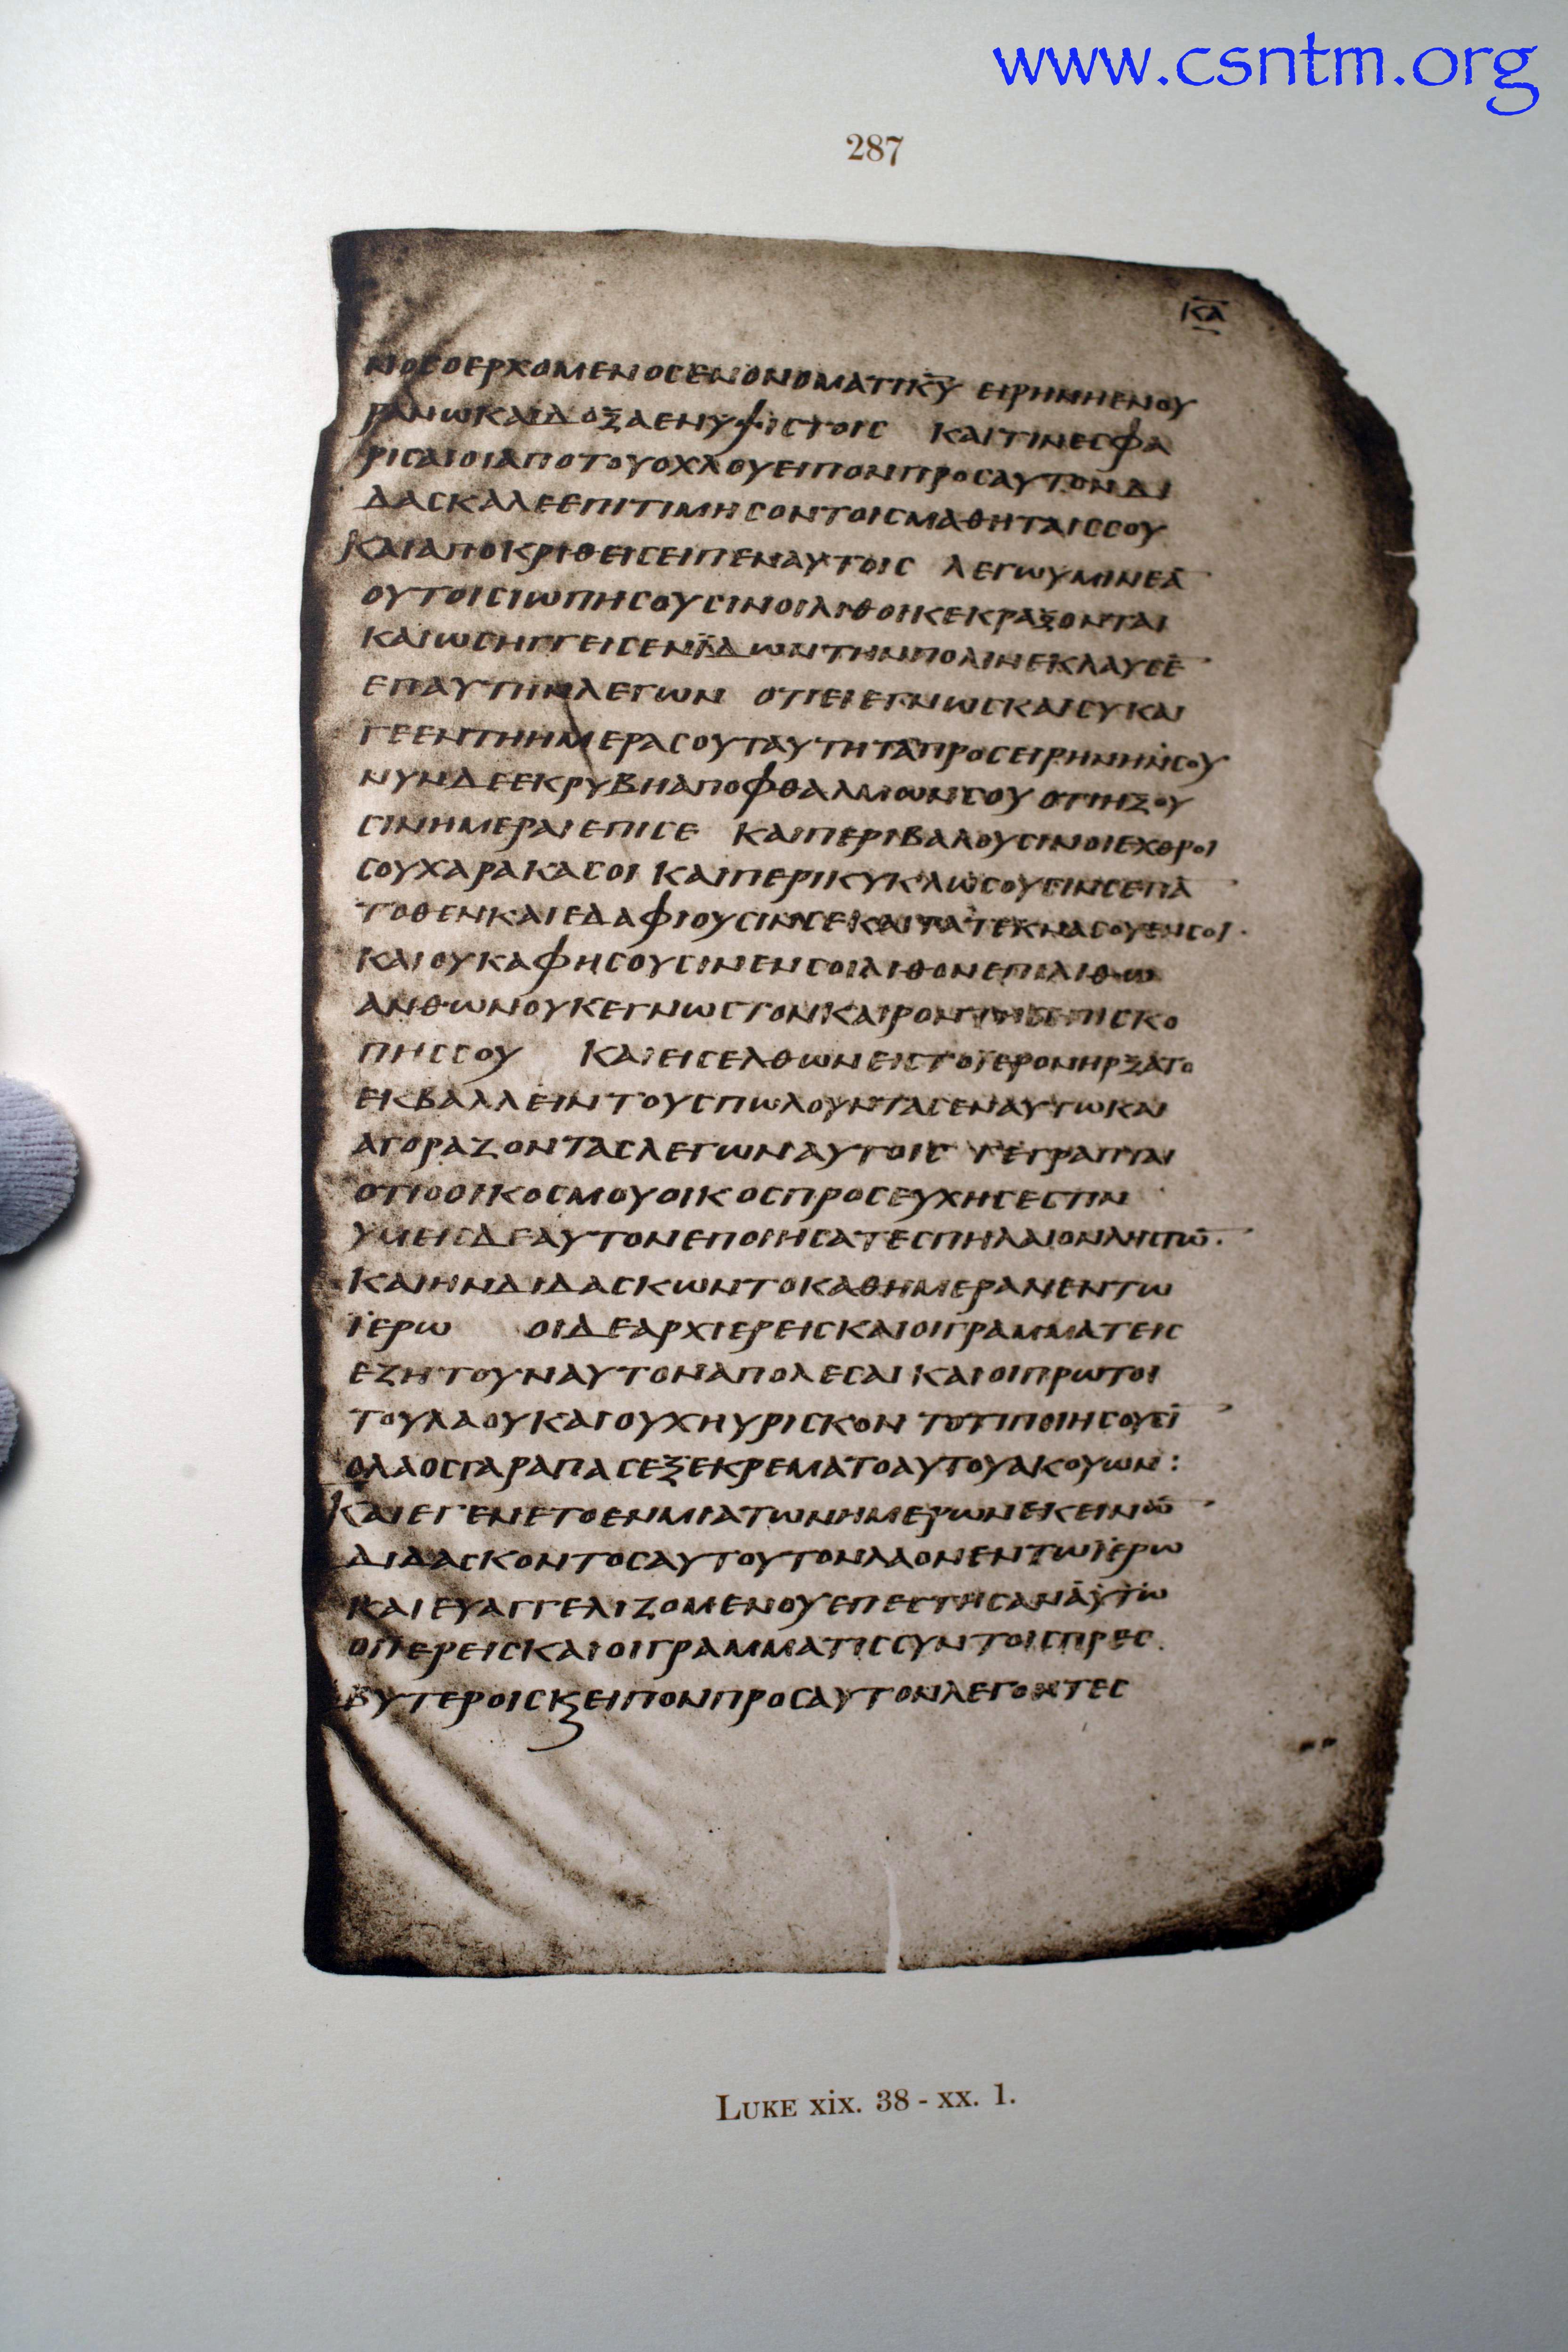 www.csntm.org
287
κ̅α̅
ΜΟϹΟΕΡΧΟΜΕΝΟϹΕΝΟΝΟΜΑΤΙΚ̅Υ̅ ΕΙΡΗΝΗΕΝΟΥ
ΡΑΝΩΚΑΙΔΟΞΑΕΝΥΨΙϹΤΟΙϹ ΚΑΙΤΙΝΕϹΦΑ
ΡΙϹΑΙΟΙΑΠΟΤΟΥΟΧΛΟΥΕΙΠΟΝΠΡΟϹΑΥΤΟΝΔΙ
ΔΑϹΚΑΛΕΕΠΙΤΙΜΗϹΟΝΤΟΙϹΜΑΘΗΤΑΙϹϹΟΥ
ΚΑΙΑΠΟΚΡΙΘΕΙϹΕΙΠΕΝΑΥΤΟΙϹ ΛΕΓΩΥΜΙΝΕΑ̅
ΟΥΤΟΙϹΙΩΠΗϹΟΥϹΙΝΟΙΛΙΘΟΙΚΕΚΡΑΞΟΝΤΑΙ
ΚΑΙΩϹΗΓΓΕΙϹΕΝΪΔΩΝΤΗΝΠΟΛΙΝΕΚΛΑΥϹΕ̅
ΕΠΑΥΤΗΝΛΕΓΩΝ ΟΤΙΕΙΕΓΝΩϹΚΑΙϹΥΚΑΙ
ΓΕΕΝΤΗΗΜΕΡΑϹΟΥΤΑΥΤΗΤΑΠΡΟϹΕΙΡΗΝΗΝϹΟΥ
ΝΥΝΔΕΕΚΡΥΒΗΑΠΟΦΘΑΛΜΩΝϹΟΥ ΟΤΙΗΞΟΥ
ϹΙΝΗΜΕΡΑΙΕΠΙϹΕ ΚΑΙΠΕΡΙΒΑΛΟΥϹΙΝΟΙΕΧΘΡΟΙ
ϹΟΥΧΑΡΑΚΑϹΟΙ ΚΑΙΠΕΡΙΚΥΚΛΩϹΟΥϹΙΝϹΕΠΑ̅
ΤΟΘΕΝΚΑΙΕΔΑΦΙΟΥϹΙΝϹΕΚΑΙΤΑΤΕΚΝΑϹΟΥΕΝϹΟΙ·
ΚΑΙΟΥΚΑΦΗϹΟΥϹΙΝΕΝϹΟΙΛΙΘΟΝΕΠΙΛΙΘΩ
ΑΝΘΩΝΟΥΚΕΓΝΩϹΤΟΝΚΑΙΡΟΝΤΗϹΕΠΙϹΚΟ
ΠΗϹϹΟΥ ΚΑΙΕΙϹΕΛΘΩΝΕΙϹΤΟΪΕΡΟΝΗΡΞΑΤΟ
ΕΚΒΑΛΛΕΙΝΤΟΥϹΠΩΛΟΥΝΤΑϹΕΝΑΥΤΩΚΑΙ
ΑΓΟΡΑΖΟΝΤΑϹΛΕΓΩΝΑΥΤΟΙϹ ΓΕΓΡΑΠΤΑΙ
ΟΤΙΟΟΙΚΟϹΜΟΥΟΙΚΟϹΠΡΟϹΕΥΧΗϹΕϹΤΙΝ
ΥΜΕΙϹΔΕΑΥΤΟΝΕΠΟΙΗϹΑΤΕϹΠΗΛΑΙΟΝΛΗϹΤΩ̅·
ΚΑΙΗΝΔΙΔΑϹΚΩΝΤΟΚΑΘΗΜΕΡΑΝΕΝΤΩ
ΪΕΡΩ ΟΙΔΕΑΡΧΙΕΡΕΙϹΚΑΙΟΙΓΡΑΜΜΑΤΕΙϹ
ΕΖΗΤΟΥΝΑΥΤΟΝΑΠΟΛΕϹΑΙ ΚΑΙΟΙΠΡΩΤΟΙ
ΤΟΥΛΑΟΥΚΑΙΟΥΧΗΥΡΙϹΚΟΝ ΤΟΤΙΠΟΙΗϹΟΥϹΙ̅
ΟΛΑΟϹΓΑΡΑΠΑϹΕΞΕΚΡΕΜΑΤΟΑΥΤΟΥΑΚΟΥΩΝ:
ΚΑΙΕΓΕΝΕΤΟΕΝΜΙΑΤΩΝΗΜΕΡΩΝΕΚΕΙΝΩ̅
ΔΙΔΑϹΚΟΝΤΟϹΑΥΤΟΥΤΟΝΛΑΟΝΕΝΤΩΪΕΡΩ
ΚΑΙΕΥΑΓΓΕΛΙΖΟΜΕΝΟΥΕΠΕϹΤΗϹΑΝΑΥΤΩ
ΟΙΙΕΡΕΙϹΚΑΙΟΙΓΡΑΜΜΑΤΙϹϹΥΝΤΟΙϹΠΡΕϹ
ΒΥΤΕΡΟΙϹϗΕΙΠΟΝΠΡΟϹΑΥΤΟΝΛΕΓΟΝΤΕϹ
LUKE xix. 38 - xx. 1.